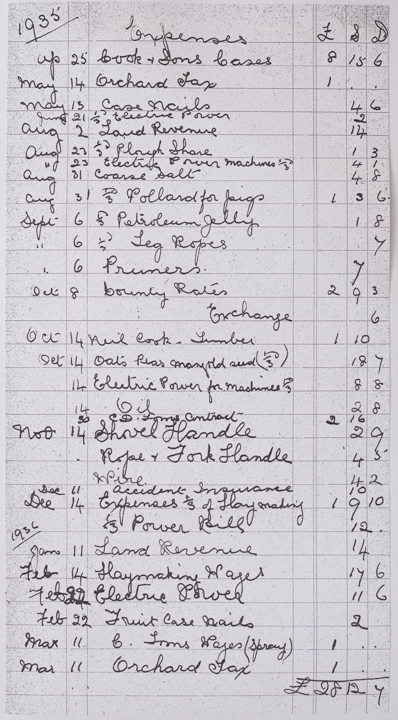 1935
Expenses £ S D
Ap 25 Cook & Sons Cases 8 15 6
May 14 Orchard Tax 1 . .
May 13 Case Nails 4 6
June 21 ⅓ Electric Power 2
Aug 2 Land Revenue 14
Aug 23 ⅓ Plough Share 1 3
" 23 Electric Power Machines ⅓ 4 1
Aug 31 Coarse Salt 4 8
Aug 31 ⅓ Pollard for pigs 1 3 6
Sept 6 ⅓ Petroleum Jelly 1 8
" 6 ⅓ Leg Ropes 7
" 6 Pruners. 7
Oct 8 County Rates 2 9 3
Exchange 6
Oct 14 Neil Cook. Timber 1 10
Oct 14 Oats Peas mangold seed (⅓) 18 7
14 Electric Power for machines ⅓ 8 8
14 Oil 2 8
30 Toms Contract 2 16
Nov 14 Shovel Handle 2 9
. Rope & Fork Handle 4 5
4 2
Dec 11 Accident Insurance 10
Dec 14 Expenses ⅓ of Haymaking 1 9 10
1936
⅓ Power Bill 12 .
Jan 11 Land Revenue 14
Feb 14 Haymaking Wages 17 6
Feb 22 Electric Power 11 6
Feb 22 Fruit Case Nails 2
Mar 11. C. Toms Wages (Spray) 1 . .
Mar 11. Orchard Tax 1 . .
£ 28 12 7